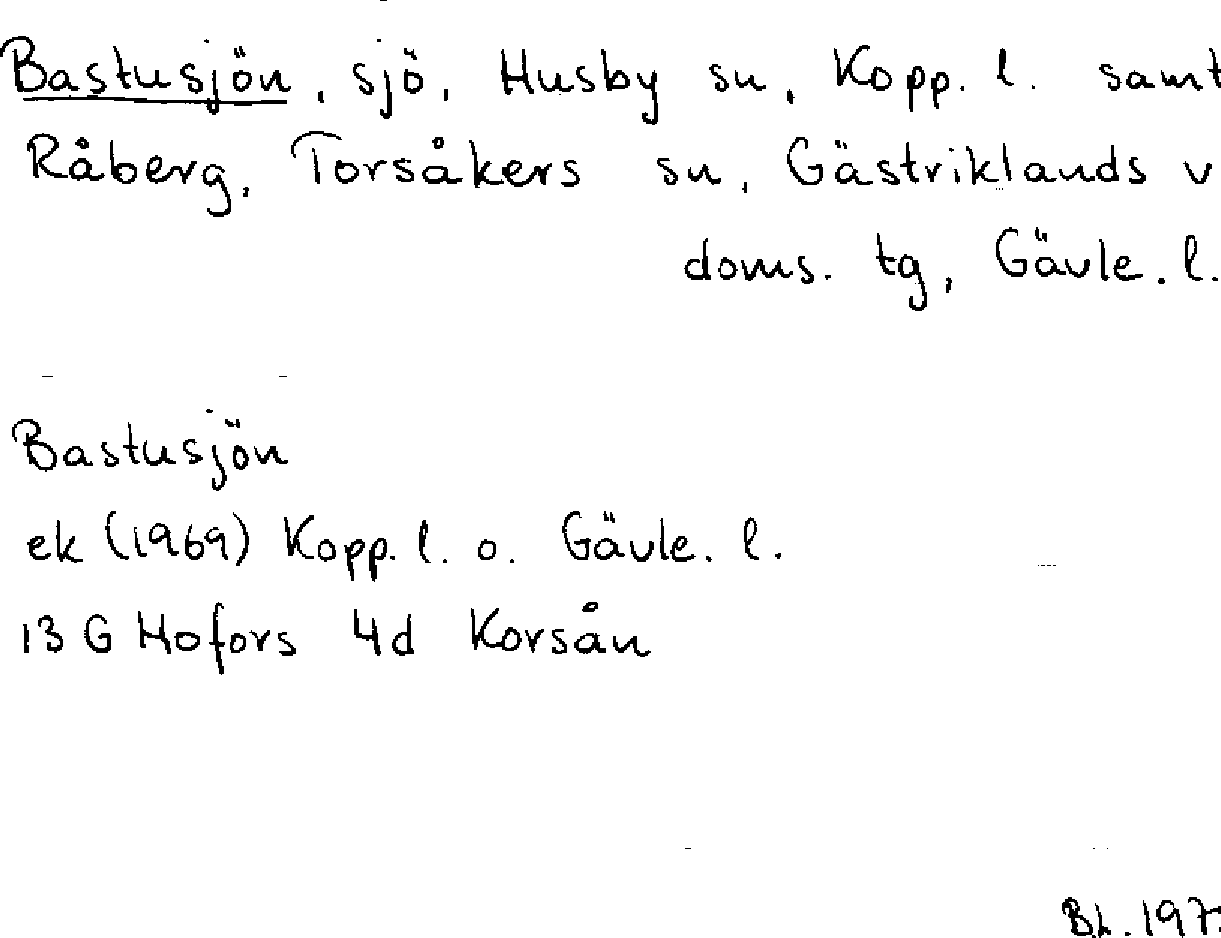 Bastusjön, sjö, Husby sn, Kopp. l. samt
Råberg, Torsåkers sn, Gästriklands v
doms. tg, Gävle. l.
Bastusjön
ek (1969) Kopp. l. o. Gävle. l.
13 G Hofors 4d Korsån